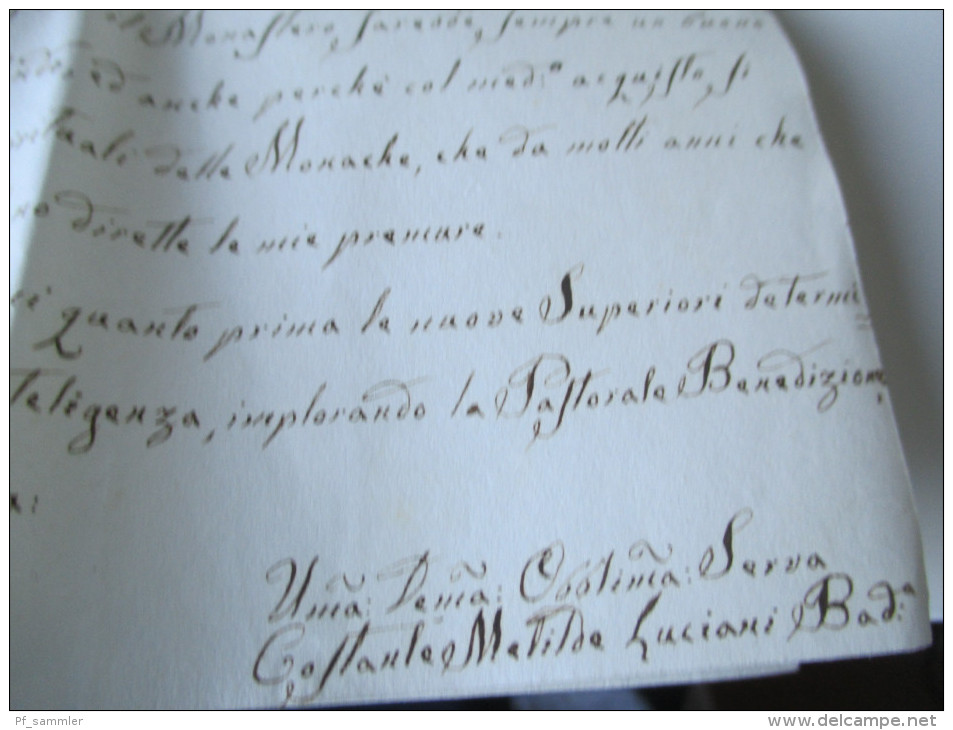 Monastero, sarebbe sempre un buono
ed anche perché col med:ᵒ acquisto si
delle Monache, che da molti anni che
dirette le mie premure.
quanto prima le nuove Superiori determi=
teligenza, implorando la Pastorale Benedizione,
a:
Umã: Demã: Obblimã: Serva
Costante Matilde Luciani Bad:ᵃ
Pf_sammler
www.delcampe.net